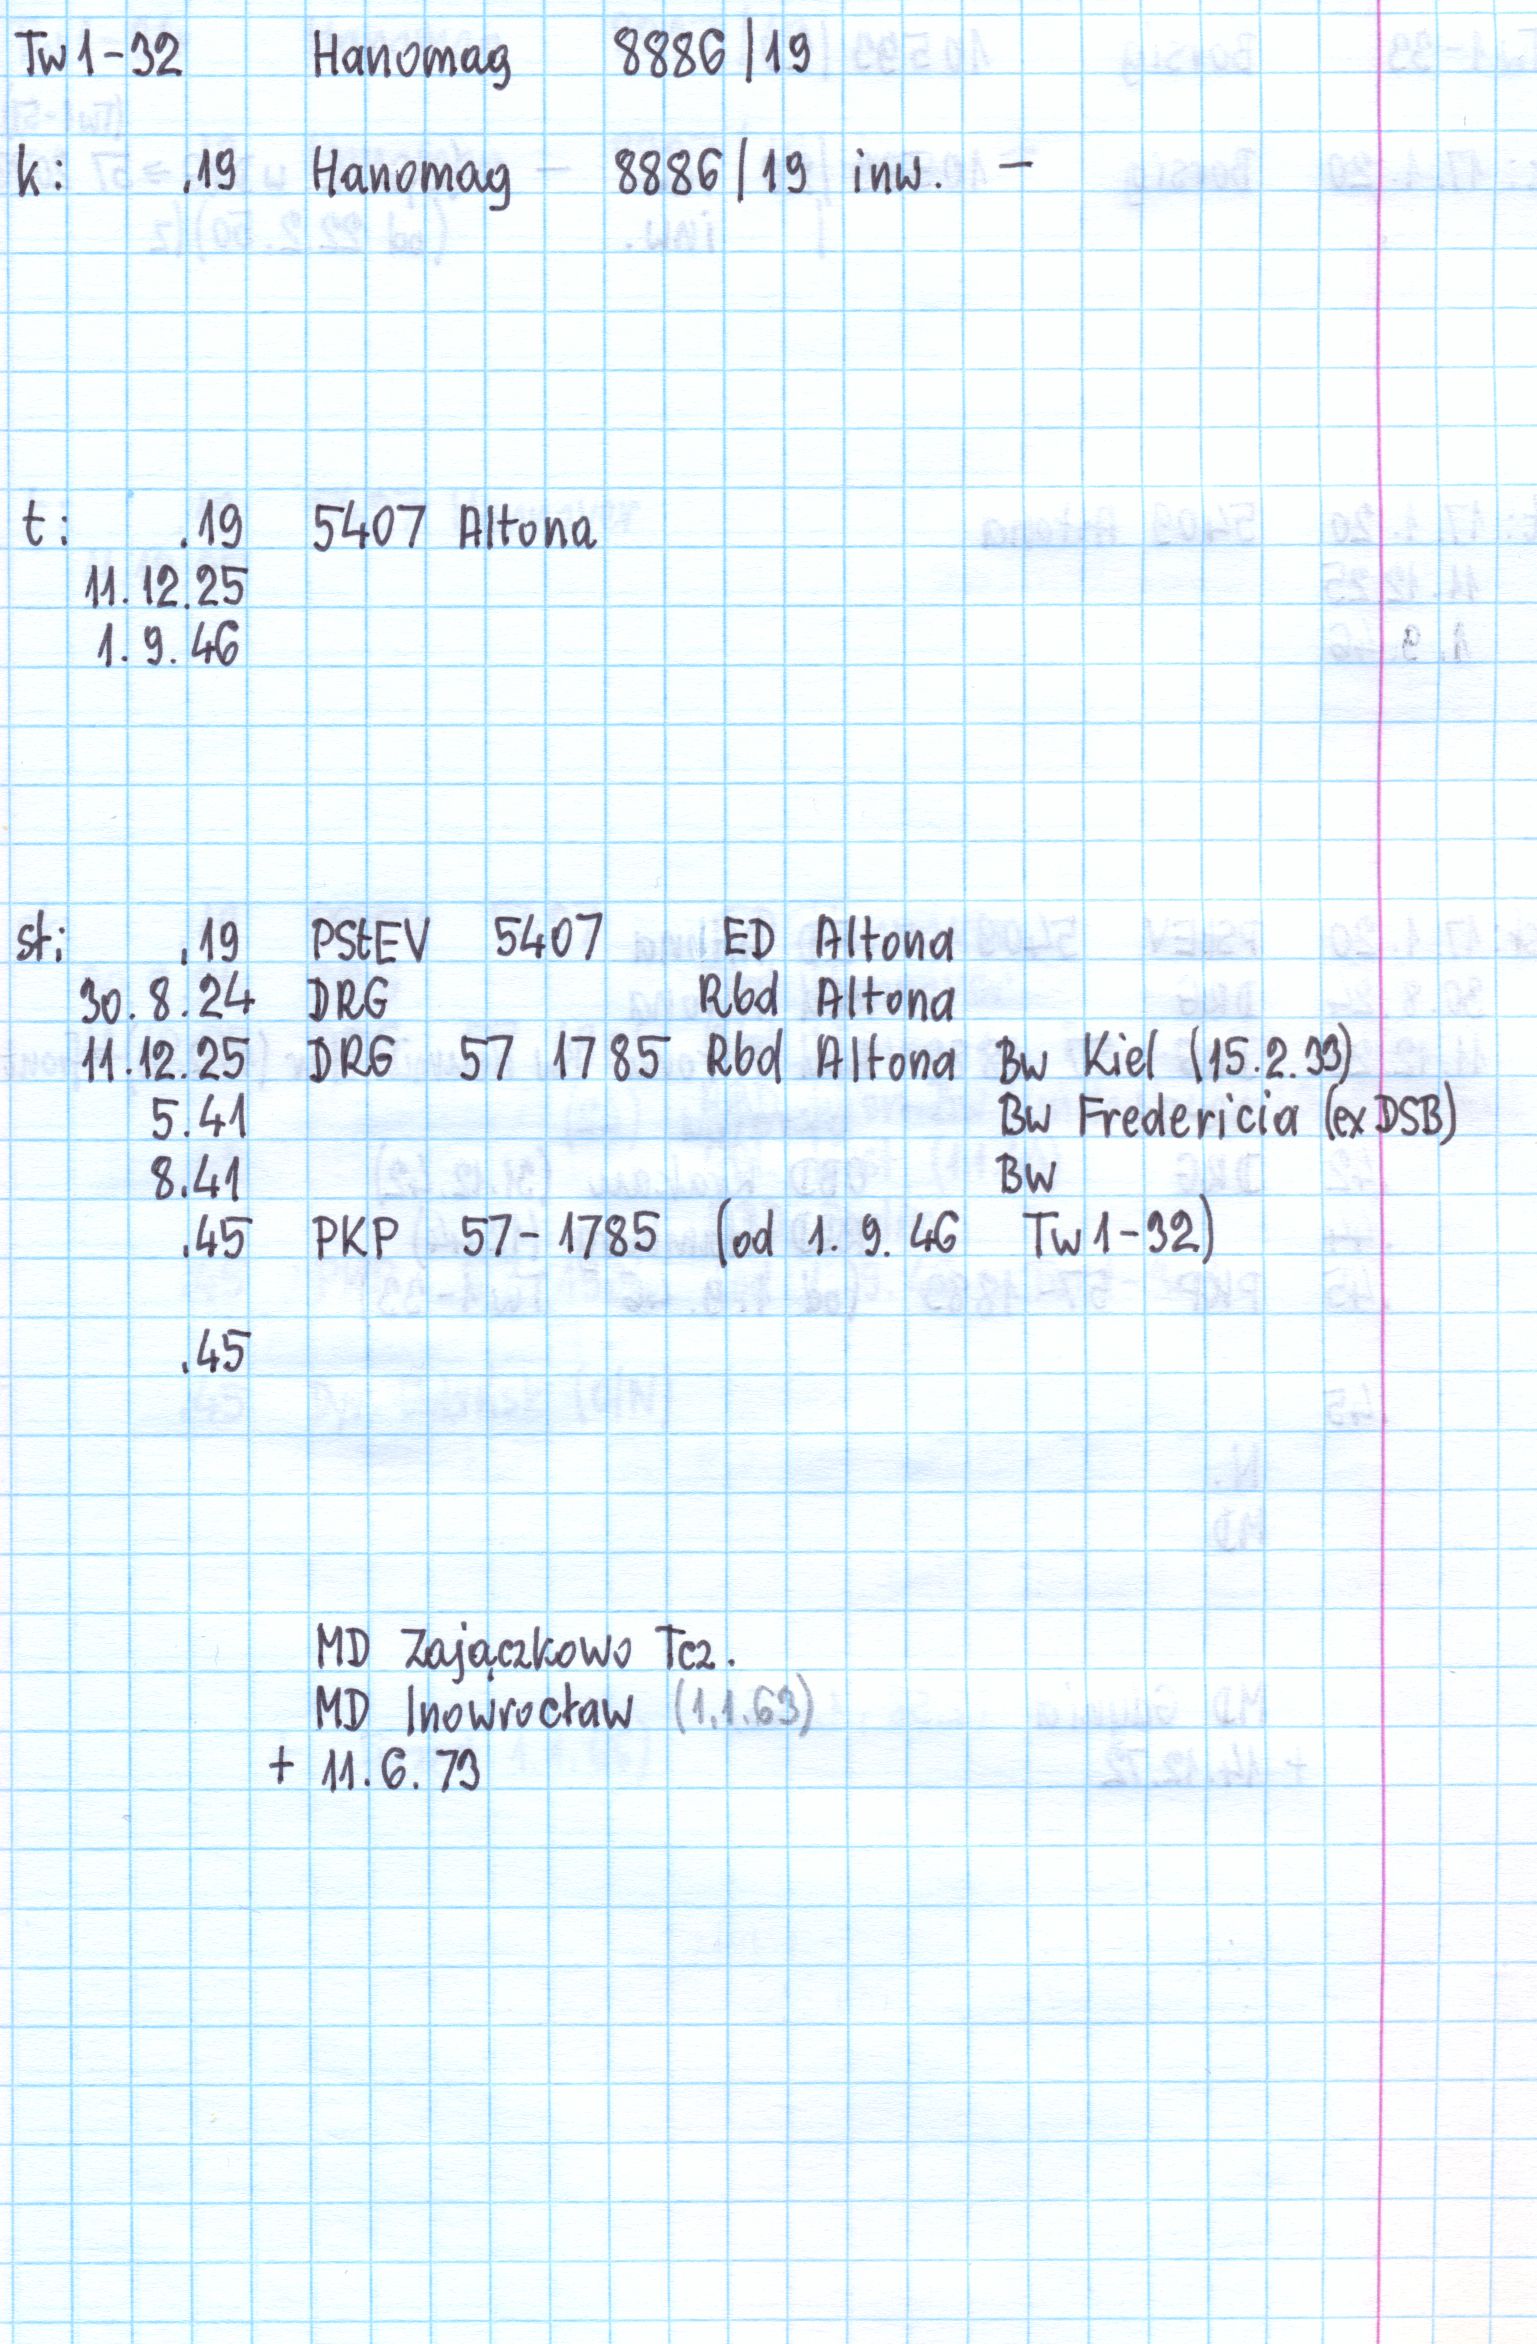 Tw1-32 Hanomag 8886/19
k: .19 Hanomag 8886/19 inw. –
t: .19 5407 Altona
11.12.25
1.9.46
st: .19 PStEV 5407 ED Altona
30.8.24 DRG Rbd Altona
11.12.25 DRG 57 1785 Rbd Altona Bw Kiel (15.2.33)
5.41 Bw Fredericia (ex DSB)
8.41 Bw
.45 PKP 57-1785 (od 1.9.46 Tw1-32)
.45
MD Zajączkowo Tcz.
MD Inowrocław (1.1.63)
+ 11.6.73